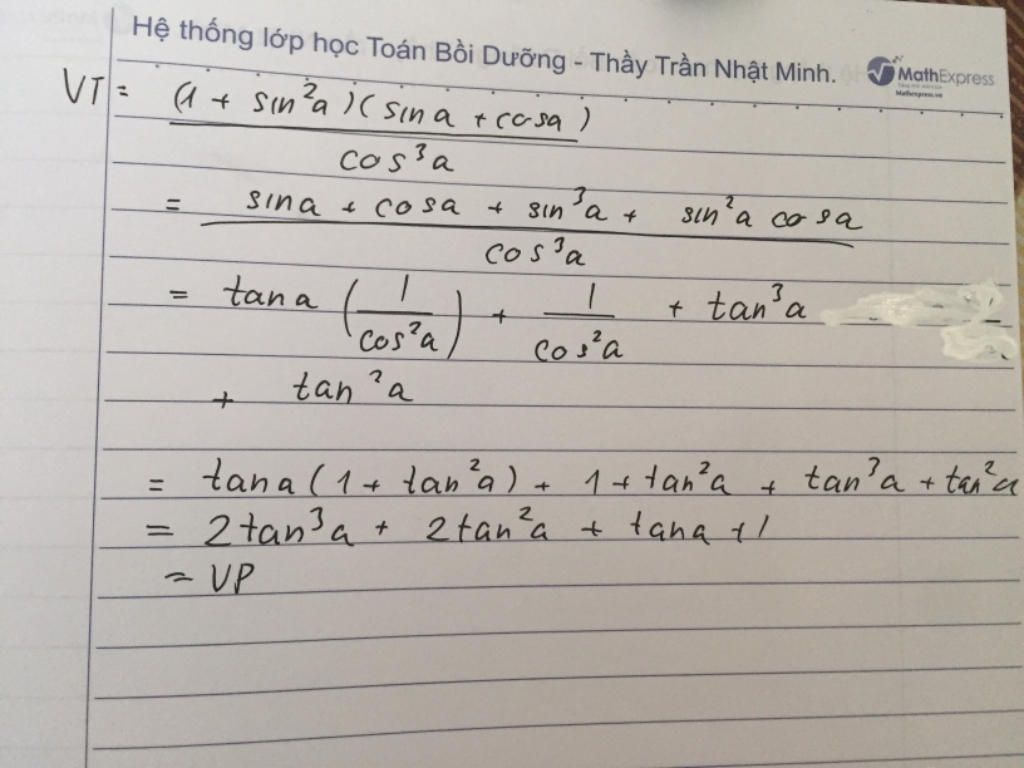 Hệ thống lớp học Toán Bồi Dưỡng - Thầy Trần Nhật Minh.
MathExpress
Mathexpress.vn
VT = (1 + sin²a)(sina + cosa)
cos³a
= sina + cosa + sin³a + sin²a cosa
cos³a
= tana (1/cos²a) + 1/cos²a + tan³a
+ tan²a
= tana(1 + tan²a) + 1 + tan²a + tan³a + tan²a
= 2tan³a + 2tan²a + tana + 1
= VP